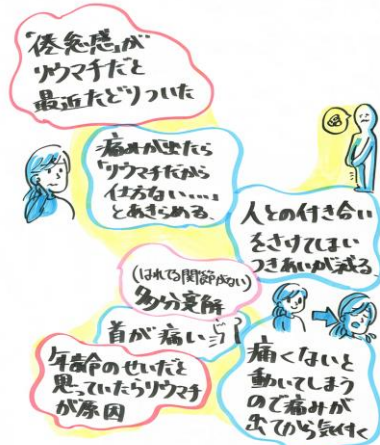 "倦怠感"が
リウマチだと
最近たどりついた
痛みが出たら
「リウマチだから
仕方ない....」
とあきらめる。
人との付き合い
をさけてしまい
つきあいが減る
(はれてる関節がない)
多分寛解
首が痛い
年齢のせいだと
思っていたらリウマチ
が原因
痛くないと
動いてしまう
ので痛みが
出てから気付く